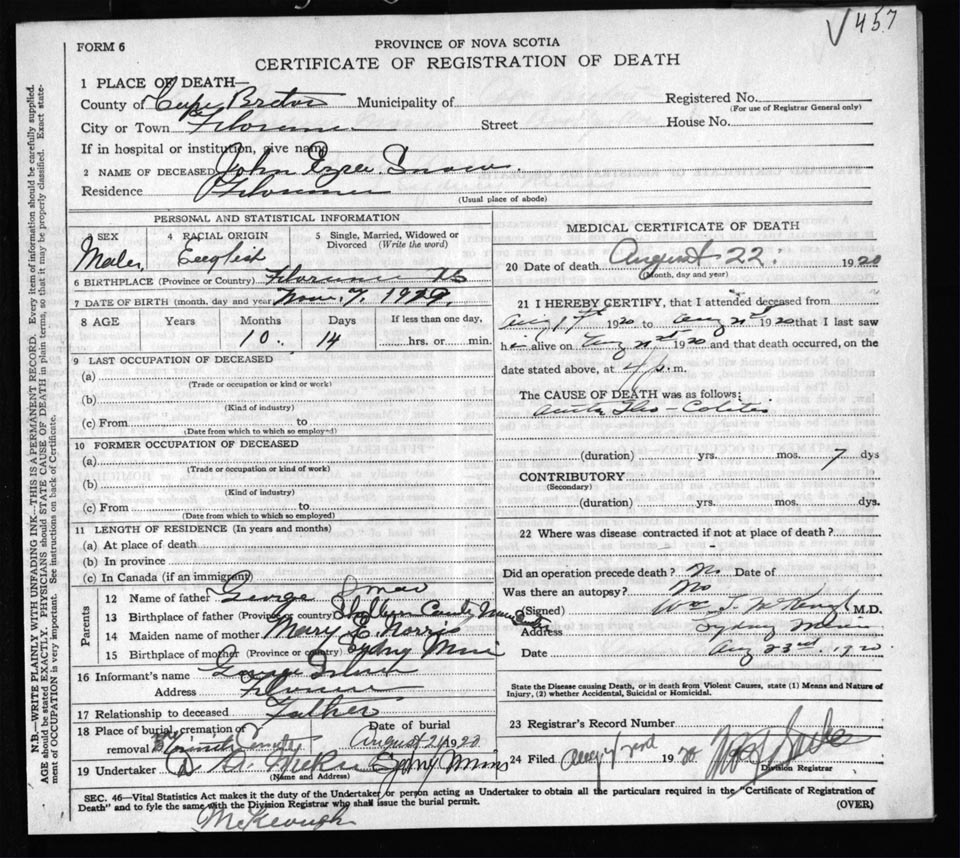 √457
FORM 6
PROVINCE OF NOVA SCOTIA
CERTIFICATE OF REGISTRATION OF DEATH
1 PLACE OF DEATH—
County of Cape Breton Municipality of
Registered No.
(For use of Registrar General only)
City or Town Florence Street House No.
If in hospital or institution, give name
2 NAME OF DECEASED John Ezra Snow
Residence Florence
(Usual place of abode)
PERSONAL AND STATISTICAL INFORMATION
3 SEX 4 RACIAL ORIGIN 5 Single, Married, Widowed or Divorced (Write the word)
Male English
6 BIRTHPLACE (Province or Country) Florence
7 DATE OF BIRTH (month, day and year) Nov. 7, 1929
8 AGE Years Months Days If less than one day,
10 14 hrs. or min.
9 LAST OCCUPATION OF DECEASED
(a)
(Trade or occupation or kind or work)
(b)
(Kind of industry)
(c) From to
(Date from which to which so employed)
10 FORMER OCCUPATION OF DECEASED
(a)
(Trade or occupation or kind of work)
(b)
(Kind of industry)
(c) From to
(Date from which to which so employed)
11 LENGTH OF RESIDENCE (In years and months)
(a) At place of death
(b) In province
(c) In Canada (if an immigrant)
Parents
12 Name of father George Snow
13 Birthplace of father (Province or country) Shelburne County
14 Maiden name of mother Mary E. Norris
15 Birthplace of mother (Province or country) Sydney Mines
16 Informant's name George Snow
Address Florence
17 Relationship to deceased Father
18 Place of burial, cremation or removal
Date of burial
August 1920
19 Undertaker Sydney Mines
(Name and Address)
MEDICAL CERTIFICATE OF DEATH
20 Date of death August 22. 1920
(Month, day and year)
21 I HEREBY CERTIFY, that I attended deceased from
Aug 17th 1920 to Aug 1920 that I last saw
him alive on Aug 1920 and that death occurred, on the
date stated above, at 4 p.m.
The CAUSE OF DEATH was as follows:
Ileo-Colitis
(duration) yrs. mos. 7 dys
CONTRIBUTORY
(Secondary)
(duration) yrs. mos. dys.
22 Where was disease contracted if not at place of death?
Did an operation precede death? No Date of
Was there an autopsy? No
(Signed) Wm. M.D.
Address Sydney Mines
Date Aug 23rd, 1920
State the Disease causing Death, or in death from Violent Causes, state (1) Means and Nature of
Injury, (2) whether Accidental, Suicidal or Homicidal.
23 Registrar's Record Number
24 Filed Aug 19
Division Registrar
SEC. 46—Vital Statistics Act makes it the duty of the Undertaker or person acting as Undertaker to obtain all the particulars required in the "Certificate of Registration of
Death" and to fyle the same with the Division Registrar who shall issue the burial permit.
(OVER)
McKeough
N.B.—WRITE PLAINLY WITH UNFADING INK—THIS IS A PERMANENT RECORD. Every item of information should be carefully supplied.
AGE should be stated EXACTLY. PHYSICIANS should STATE CAUSE OF DEATH in plain terms, so that it may be properly classified. Exact state-
ment of OCCUPATION is very important. See instructions on back of Certificate.